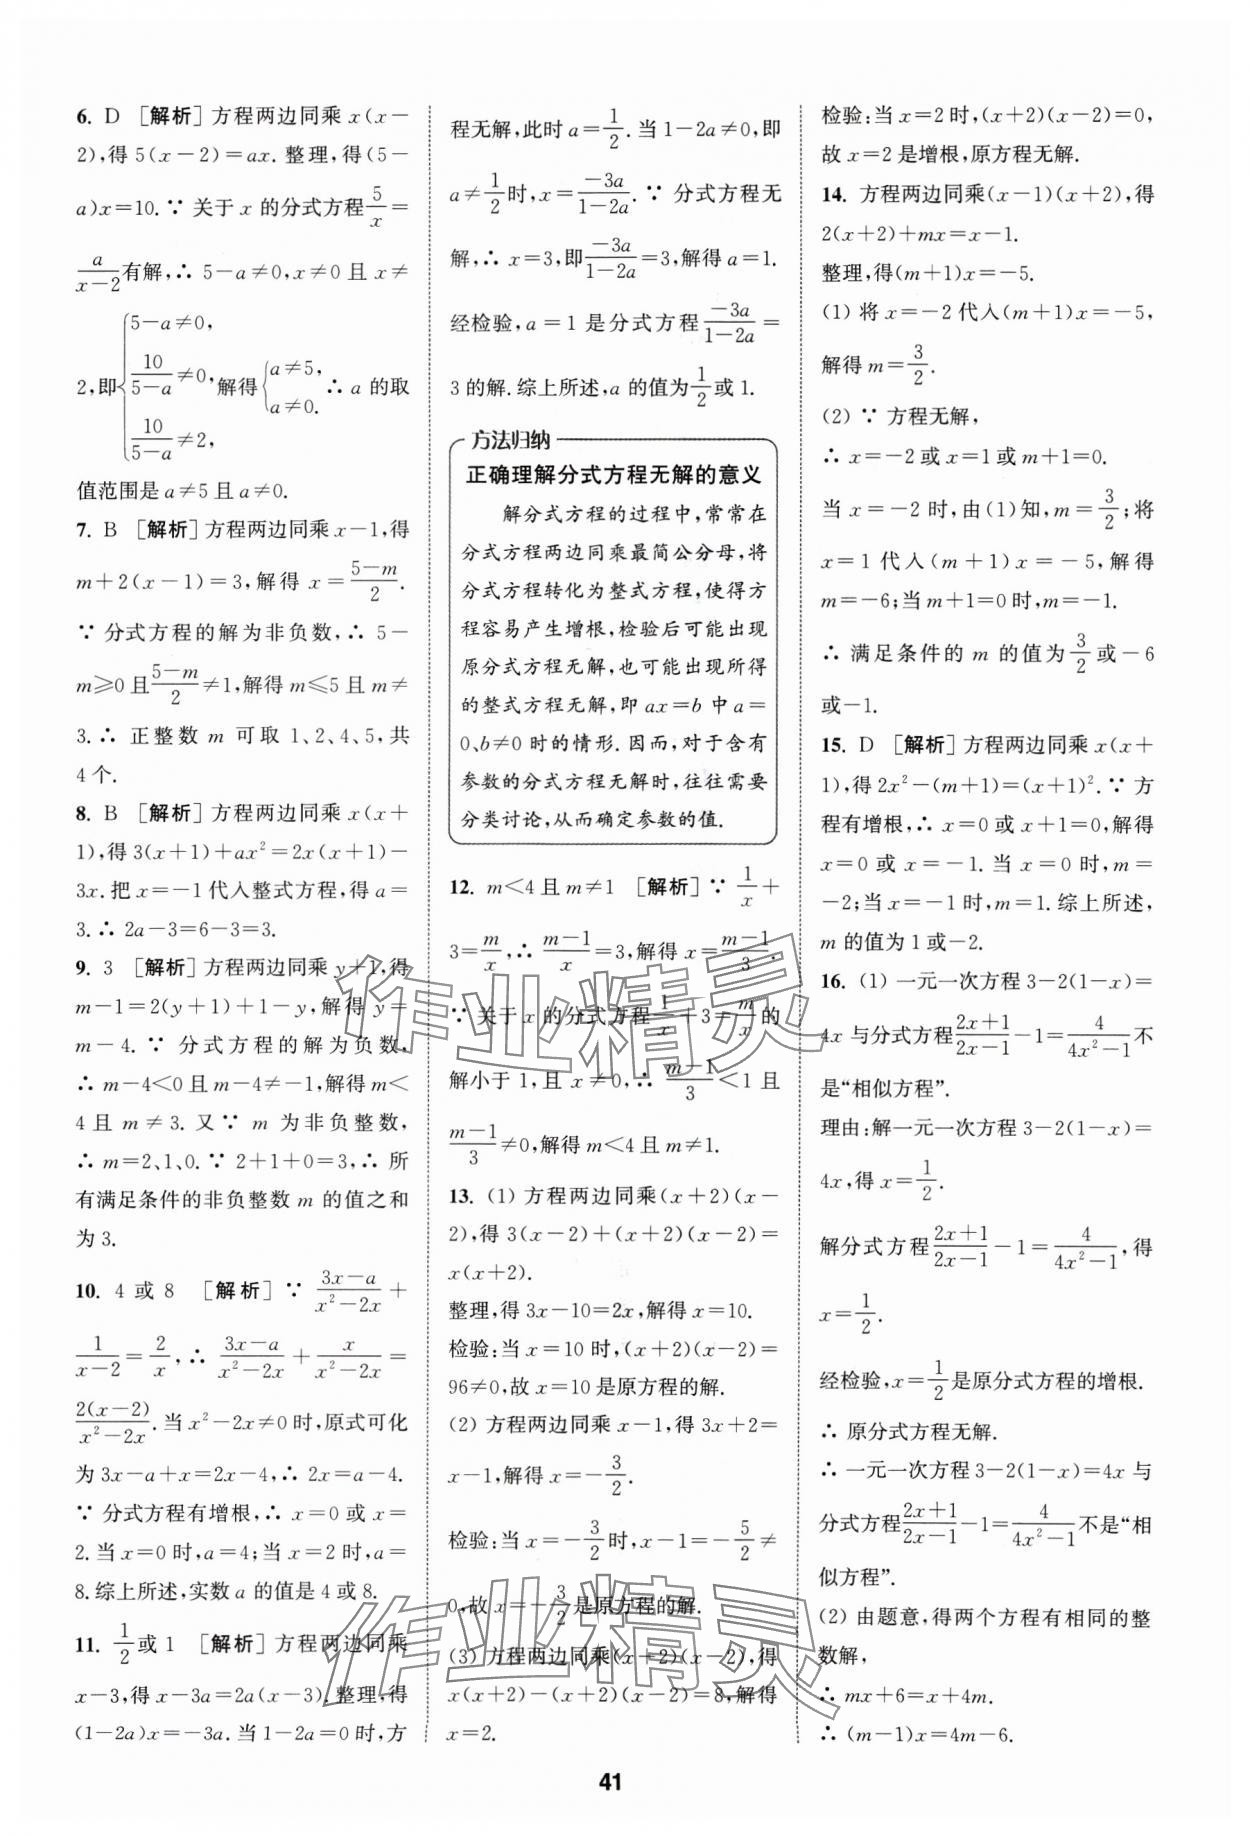 6. D [解析]方程两边同乘 x(x－
2),得 5(x－2)＝ax. 整理,得(5－
a)x＝10. ∵ 关于 x 的分式方程5/x＝
a/(x－2)有解,∴ 5－a≠0,x≠0 且 x≠
2,即{5－a≠0, 10/(5－a)≠0, 10/(5－a)≠2,解得{a≠5, a≠0. ∴ a 的取
值范围是 a≠5 且 a≠0.
7. B [解析]方程两边同乘 x－1,得
m＋2(x－1)＝3,解得 x＝(5－m)/2.
∵ 分式方程的解为非负数,∴ 5－
m≥0 且(5－m)/2≠1,解得 m≤5 且 m≠
3. ∴ 正整数 m 可取 1、2、4、5,共
4 个.
8. B [解析]方程两边同乘 x(x＋
1),得 3(x＋1)＋ax²＝2x(x＋1)－
3x. 把 x＝－1 代入整式方程,得 a＝
3. ∴ 2a－3＝6－3＝3.
9. 3 [解析]方程两边同乘 y＋1,得
m－1＝2(y＋1)＋1－y,解得 y＝
m－4. ∵ 分式方程的解为负数,
∴ m－4＜0 且 m－4≠－1,解得 m＜
4 且 m≠3. 又∵ m 为非负整数,
∴ m＝2、1、0. ∵ 2＋1＋0＝3,∴ 所
有满足条件的非负整数 m 的值之和
为 3.
10. 4 或 8 [解析]∵ (3x－a)/(x²－2x)＋
1/(x－2)＝2/x,∴ (3x－a)/(x²－2x)＋x/(x²－2x)＝
2(x－2)/(x²－2x). 当 x²－2x≠0 时,原式可化
为 3x－a＋x＝2x－4,∴ 2x＝a－4.
∵ 分式方程有增根,∴ x＝0 或 x＝
2. 当 x＝0 时,a＝4;当 x＝2 时,a＝
8. 综上所述,实数 a 的值是 4 或 8.
11. 1/2或 1 [解析]方程两边同乘
x－3,得 x－3a＝2a(x－3). 整理,得
(1－2a)x＝－3a. 当 1－2a＝0 时,方
程无解,此时 a＝1/2. 当 1－2a≠0,即
a≠1/2时,x＝－3a/(1－2a). ∵ 分式方程无
解,∴ x＝3,即－3a/(1－2a)＝3,解得 a＝1.
经检验,a＝1 是分式方程－3a/(1－2a)＝
3 的解. 综上所述,a 的值为1/2或 1.
方法归纳
正确理解分式方程无解的意义
解分式方程的过程中,常常在
分式方程两边同乘最简公分母,将
分式方程转化为整式方程,使得方
程容易产生增根,检验后可能出现
原分式方程无解,也可能出现所得
的整式方程无解,即 ax＝b 中 a＝
0、b≠0 时的情形. 因而,对于含有
参数的分式方程无解时,往往需要
分类讨论,从而确定参数的值.
12. m＜4 且 m≠1 [解析]∵ 1/x＋
3＝m/x,∴ (m－1)/x＝3,解得 x＝(m－1)/3.
∵ 关于 x 的分式方程1/x＋3＝m/x的
解小于 1,且 x≠0,∴ (m－1)/3＜1 且
(m－1)/3≠0,解得 m＜4 且 m≠1.
13. (1) 方程两边同乘(x＋2)(x－
2),得 3(x－2)＋(x＋2)(x－2)＝
x(x＋2).
整理,得 3x－10＝2x,解得 x＝10.
检验:当 x＝10 时,(x＋2)(x－2)＝
96≠0,故 x＝10 是原方程的解.
(2) 方程两边同乘 x－1,得 3x＋2＝
x－1,解得 x＝－3/2.
检验:当 x＝－3/2时,x－1＝－5/2≠
0,故 x＝－3/2是原方程的解.
(3) 方程两边同乘(x＋2)(x－2),得
x(x＋2)－(x＋2)(x－2)＝8,解得
x＝2.
检验:当 x＝2 时,(x＋2)(x－2)＝0,
故 x＝2 是增根,原方程无解.
14. 方程两边同乘(x－1)(x＋2),得
2(x＋2)＋mx＝x－1.
整理,得(m＋1)x＝－5.
(1) 将 x＝－2 代入(m＋1)x＝－5,
解得 m＝3/2.
(2) ∵ 方程无解,
∴ x＝－2 或 x＝1 或 m＋1＝0.
当 x＝－2 时,由(1)知,m＝3/2;将
x＝1 代入(m＋1)x＝－5,解得
m＝－6;当 m＋1＝0 时,m＝－1.
∴ 满足条件的 m 的值为3/2或－6
或－1.
15. D [解析]方程两边同乘 x(x＋
1),得 2x²－(m＋1)＝(x＋1)². ∵ 方
程有增根,∴ x＝0 或 x＋1＝0,解得
x＝0 或 x＝－1. 当 x＝0 时,m＝
－2;当 x＝－1 时,m＝1. 综上所述,
m 的值为 1 或－2.
16. (1) 一元一次方程 3－2(1－x)＝
4x 与分式方程(2x＋1)/(2x－1)－1＝4/(4x²－1)不
是“相似方程”.
理由:解一元一次方程 3－2(1－x)＝
4x,得 x＝1/2.
解分式方程(2x＋1)/(2x－1)－1＝4/(4x²－1),得
x＝1/2.
经检验,x＝1/2是原分式方程的增根.
∴ 原分式方程无解.
∴ 一元一次方程 3－2(1－x)＝4x 与
分式方程(2x＋1)/(2x－1)－1＝4/(4x²－1)不是“相
似方程”.
(2) 由题意,得两个方程有相同的整
数解,
∴ mx＋6＝x＋4m.
∴ (m－1)x＝4m－6.
41
作业精灵
作业精灵